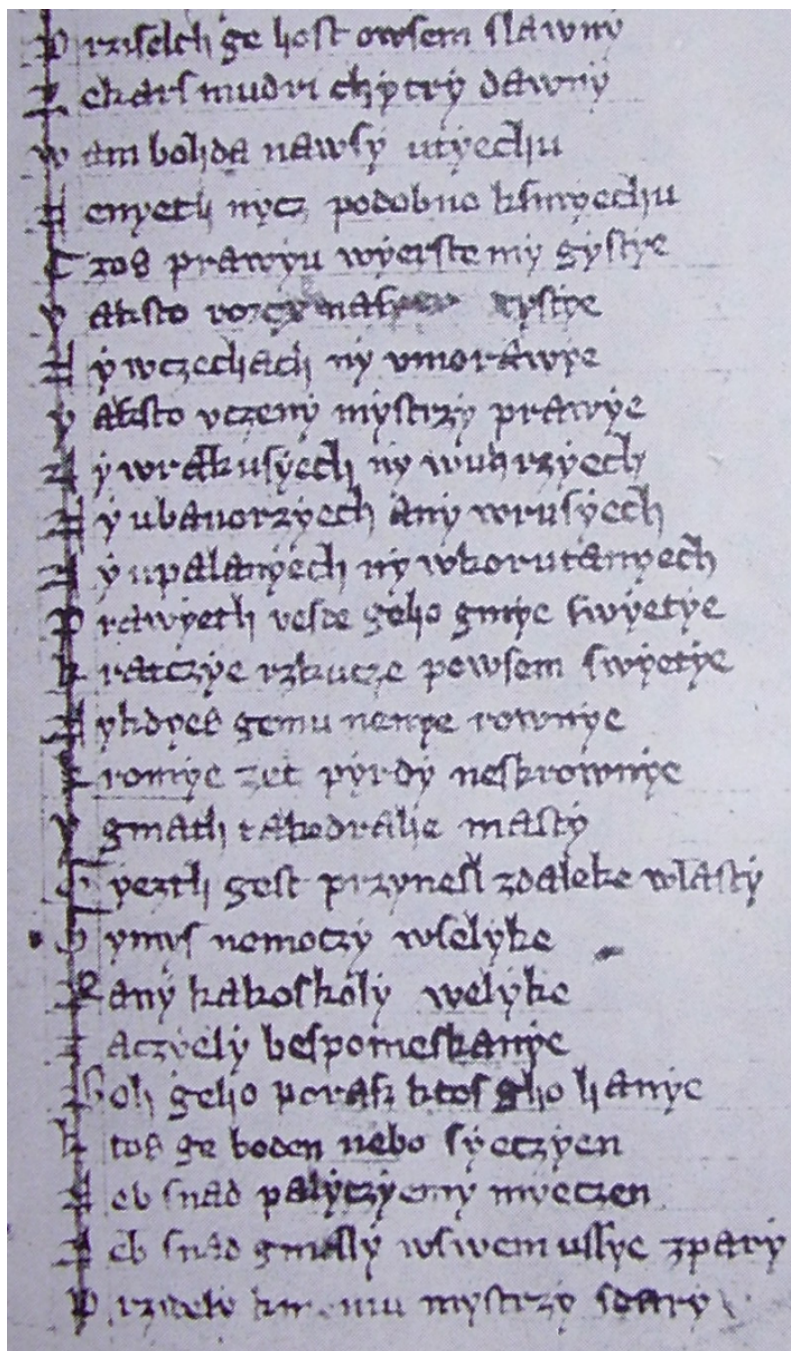 Prziselch ge host owsem slawny
Lekars mudri chytry dawny
Wam bohda nawsy utyechu
Nenyeth nycz podobno ksmyechu
Czos prawyu wyerste my gystye
Yaksto
Ny wczechach ny vmorawye
Yaksto vczeny mystrzy prawye
Ny wrakusyech ny wuhrzyech
Ny ubauorzyech any wrusyech
Ny upalanyech ny wkorutanyech
Prawyeth vesde geho gmye swyetye
Kratczye rzkucze powsem swyetye
Nykdyes gemu nenye rownye
Kromye zet pyrdy neskrownye
Y gmath takedrahe masty
Gyezth gest przynesl zdaleke wlasty
Gymys nemoczy wselyke
Rany kakoskoly welyke
Laczyely bespomeskanye
Boh geho poraß ktos gho hanye
Ktos ge boden nebo syeczyen
Neb snad palyczyemy myeczen
Neb snad gmally wswem ussye zpary
Przided kmemu mystrzy stary